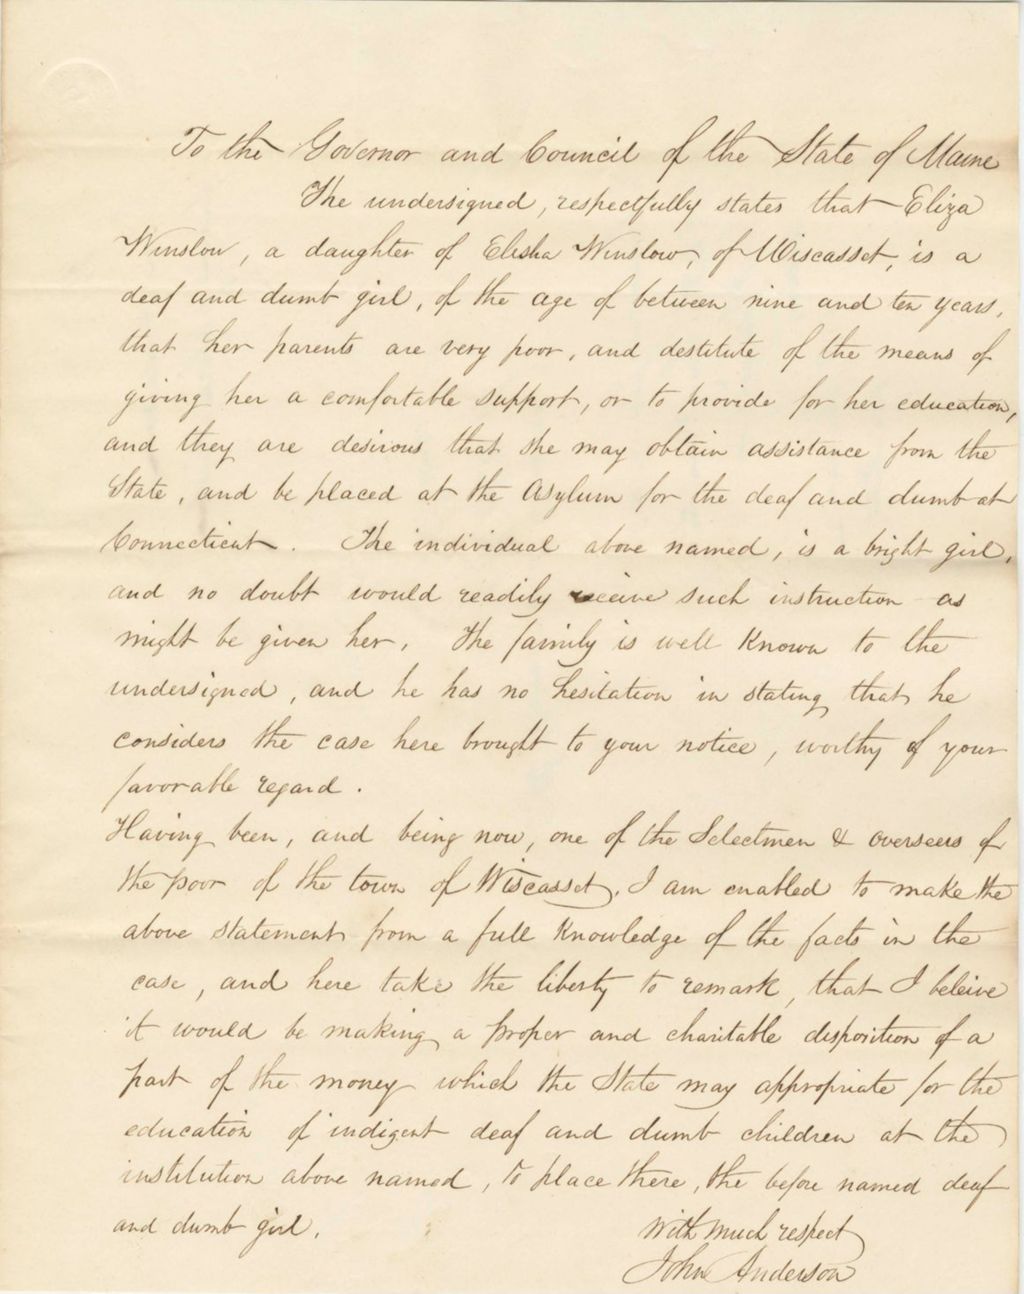 To the Governor and Council of the State of Maine
The undersigned, respectfully states that Eliza
Winslow, a daughter of Elisha Winslow, of Wiscasset, is a
deaf and dumb girl, of the age of between nine and ten years,
that her parents are very poor, and destitute of the means of
giving her a comfortable support, or to provide for her education,
and they are desirous that she may obtain assistance from the
State, and be placed at the Asylum for the deaf and dumb at
Connecticut. The individual above named, is a bright girl,
and no doubt would readily receive such instruction as
might be given her. The family is well known to the
undersigned, and he has no hesitation in stating that he
considers the case here brought to your notice, worthy of your
favorable regard.
Having been, and being now, one of the Selectmen & overseers of
the poor of the town of Wiscasset, I am enabled to make the
above statement from a full knowledge of the facts in the
case, and here take the liberty to remark, that I beleive
it would be making a proper and charitable disposition of a
part of the money which the State may appropriate for the
education of indigent deaf and dumb children at the
institution above named, to place there, the before named deaf
and dumb girl.
With much respect
John Anderson